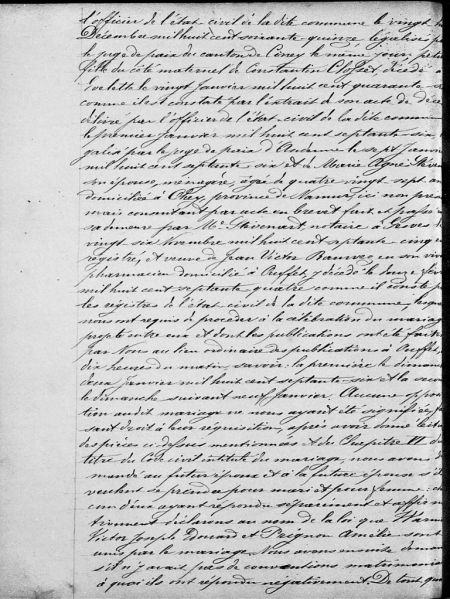 l'officier de l'état civil de la dite commune le vingt
Décembre mil huit cent soixante quinze légalisé par
le juge de paix du canton de Ciney le même jour, petite
fille du côté maternel de Constantin Closset, décédé à
le vingt Janvier mil huit cent quarante
comme il est constaté par l'extrait de son acte de décès
délivré par l'officier de l'état civil de la dite commune
le premier Janvier mil huit cent septante six
galisé par le juge de paix d'Andenne le sept Janvier
mil huit cent septante six et de Marie Agnès
son épouse, ménagère, âgée de quatre vingt sept ans
domiciliée à Ohey, province de Namur, ici non présente
mais consentant par acte en brevet fait et passé en
sa demeure par Mr. notaire à Gesves le
vingt six Novembre mil huit cent septante cinq
registré, et veuve de Jean Victor Bauvez en son vivant
pharmacien domicilié à et y décédé le douze
mil huit cent septante quatre comme il conste par
les régistres de l'état civil de la dite commune, lesquels
nous ont requis de procéder à la célébration du mariage
projeté entre eux et dont les publications ont été faites
par Nous au lieu ordinaire des publications à
dix heures du matin, savoir: la première le dimanche
deux Janvier mil huit cent septante six et la seconde
le dimanche suivant neuf Janvier. Aucune opposi
tion audit mariage ne nous ayant été signifiée, fai
sant droit à leur réquisition, après avoir donné lecture
des pièces ci-dessus mentionnées et du Chapitre VI du
titre du Code civil intitulé du mariage, nous avons de
mandé au futur époux et à la future épouse s'ils
veulent se prendre pour mari et pour femme: cha
cun d'eux ayant répondu séparément et affirma
tivement déclarons au nom de la loi que
Victor Joseph Donard et Peignon Amélie sont
unis par le mariage. Nous avons ensuite demandé
s'il n'y avait pas de conventions matrimoniales
à quoi ils ont répondu négativement. De tout quoi